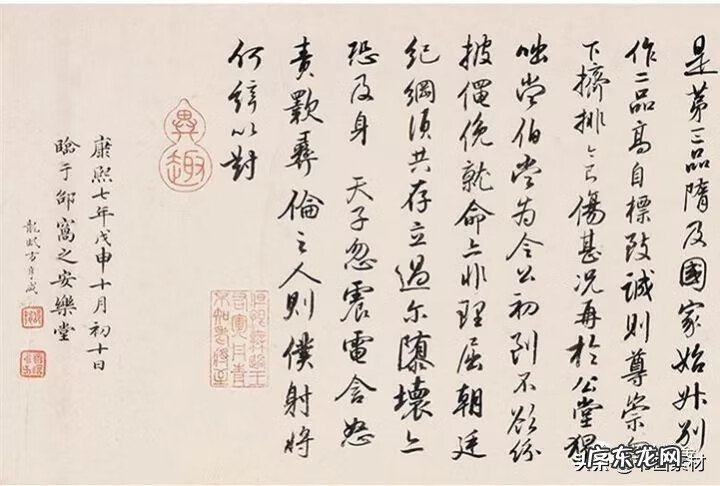 是第三品隋及國家始升别
作二品高自標致誠則尊崇
下擠排乃傷甚況再於公堂猥
咄常伯常为令公初到不欲紛
披僶俛就命亦非理屈朝廷
紀綱須共存立過尔隳壞亦
恐及身 天子忽震電含怒
責斁彝倫之人則僕射將
何辞以對
異趣
康熙七年戊申十月初十日
臨于邵窩之安樂堂
龍眠方亨咸
广东龙网